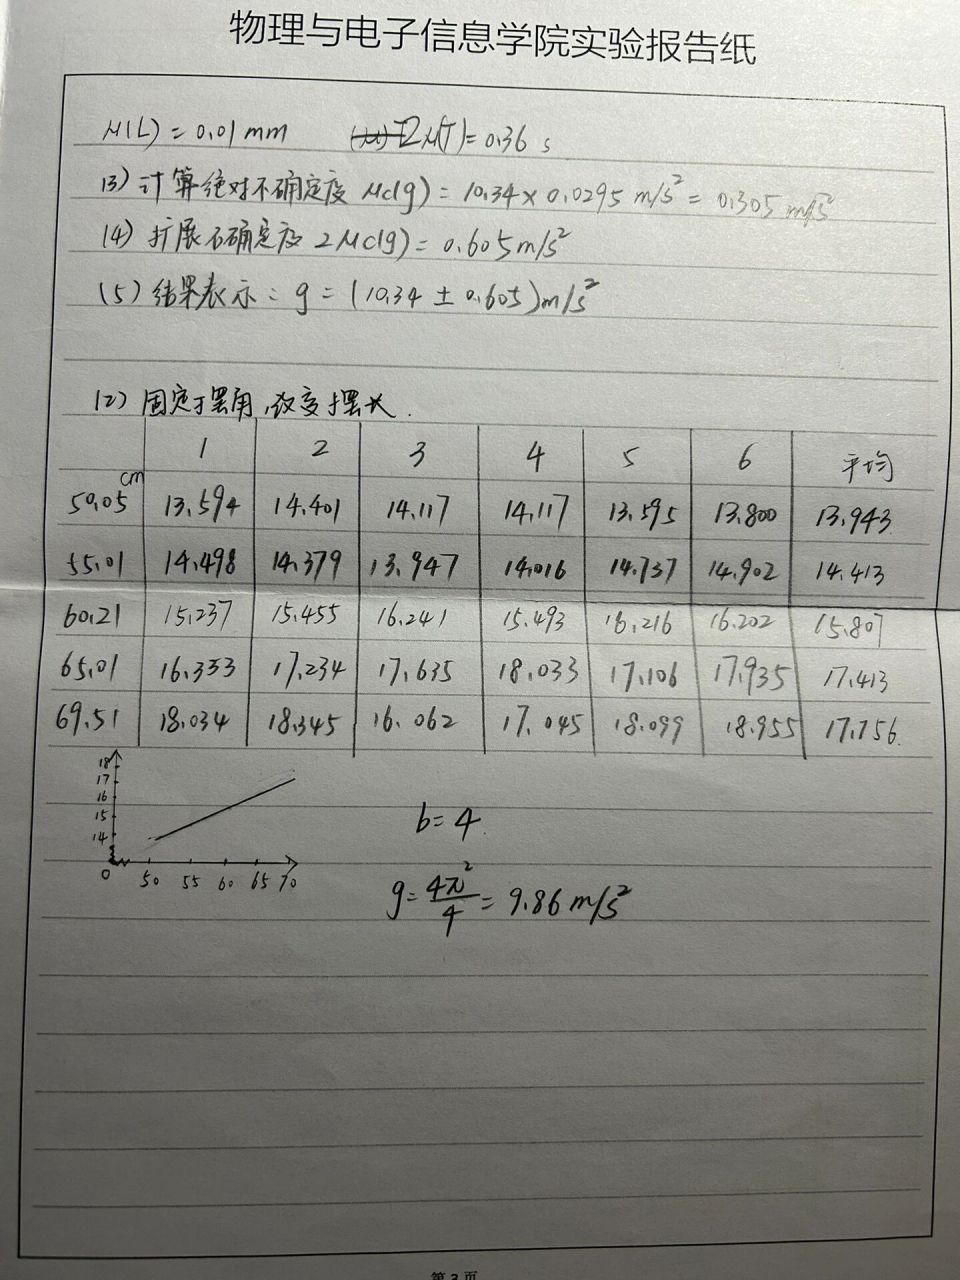 物理与电子信息学院实验报告纸
μ(L) = 0.01 mm μ(T) = 0.36 s
(3) 计算绝对不确定度 μc(g) = 10.34 × 0.0295 m/s² = 0.305 m/s²
(4) 扩展不确定度 2μc(g) = 0.605 m/s²
(5) 结果表示: g = (10.34 ± 0.605) m/s²
(2) 固定摆角,改变摆长.
1 2 3 4 5 6 平均
50.05 cm 13.594 14.401 14.117 14.117 13.595 13.800 13.943
55.01 14.498 14.379 13.947 14.016 14.737 14.902 14.413
60.21 15.237 15.455 16.241 15.493 16.216 16.202 15.807
65.01 16.333 17.234 17.635 18.033 17.106 17.935 17.413
69.51 18.034 18.345 16.062 17.045 18.099 18.955 17.756
18
17
16
15
14
0 50 55 60 65 70
b = 4
g = 4π²/4 = 9.86 m/s²
第 3 页